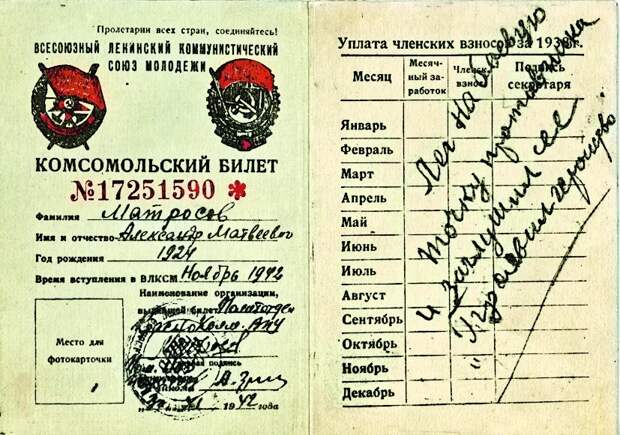 Пролетарии всех стран, соединяйтесь!
ВСЕСОЮЗНЫЙ ЛЕНИНСКИЙ КОММУНИСТИЧЕСКИЙ
СОЮЗ МОЛОДЕЖИ
КОМСОМОЛЬСКИЙ БИЛЕТ
№17251590 *
Фамилия Матросов
Имя и отчество Александр Матвеевич
Год рождения 1924
Время вступления в ВЛКСМ Ноябрь 1942
Наименование организации,
выдавшей билет Политотдел
Место для
фотокарточки
подпись
1942 года
Уплата членских взносов за 193 г.
Месяц
Месяч-
ный за-
работок
Членск.
взнос
Подпись
секретаря
Январь
Февраль
Март
Апрель
Май
Июнь
Июль
Август
Сентябрь
Октябрь
Ноябрь
Декабрь
Лег на боевую
точку противника
и заглушил ее
Проявил геройство